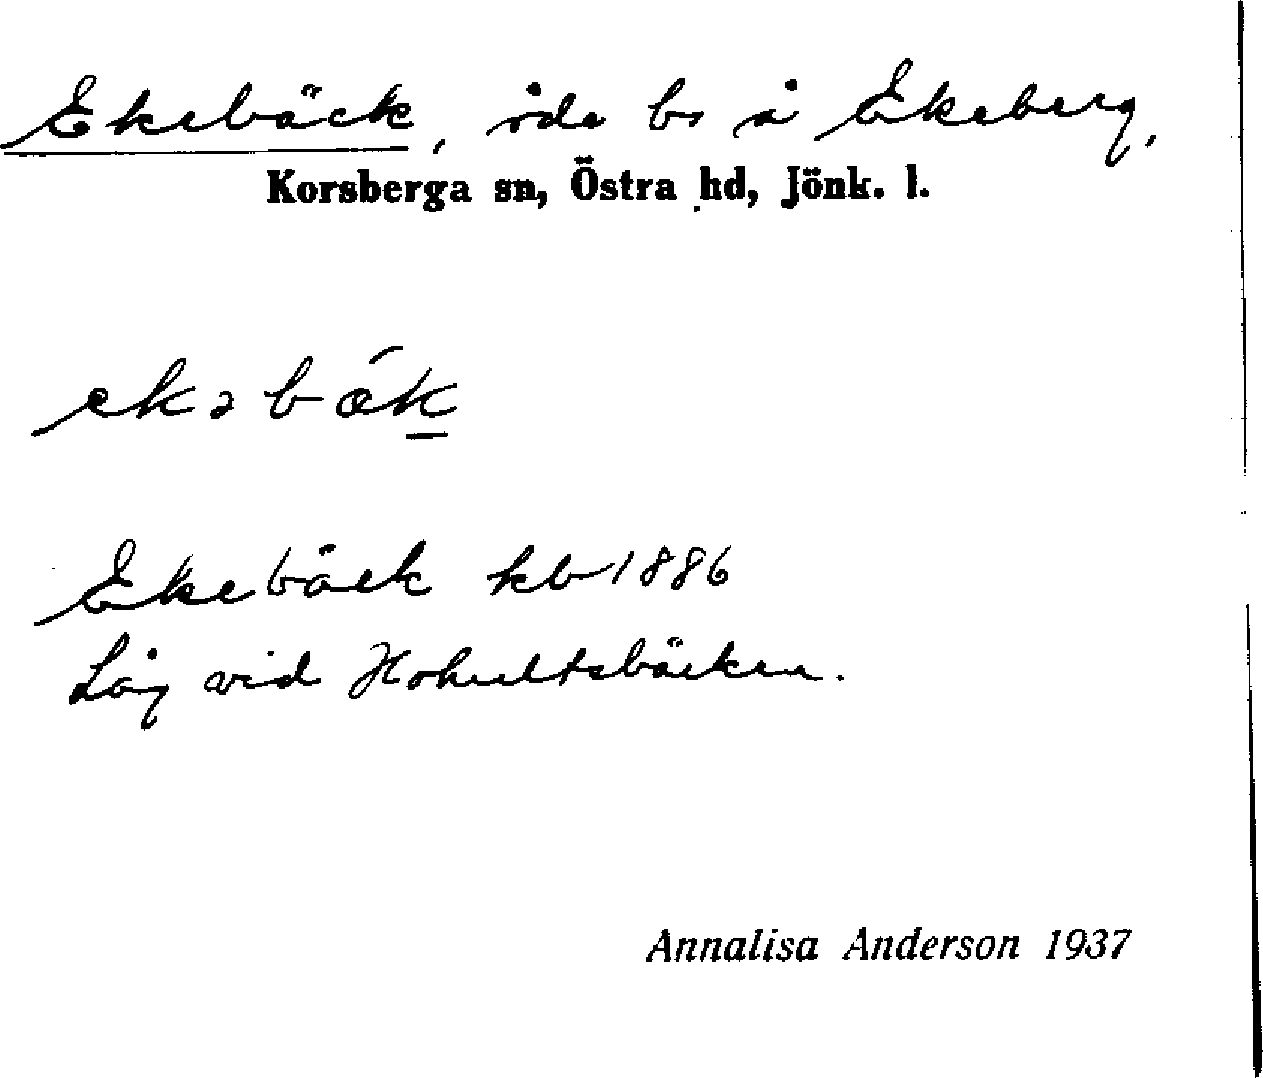 Ekebäck, öde bs å Ekeberg,
Korsberga sn, Östra hd, Jönk. l.
ekəbǽk
Ekebäck kb 1886
Låg vid Hohultsbäcken.
Annalisa Anderson 1937